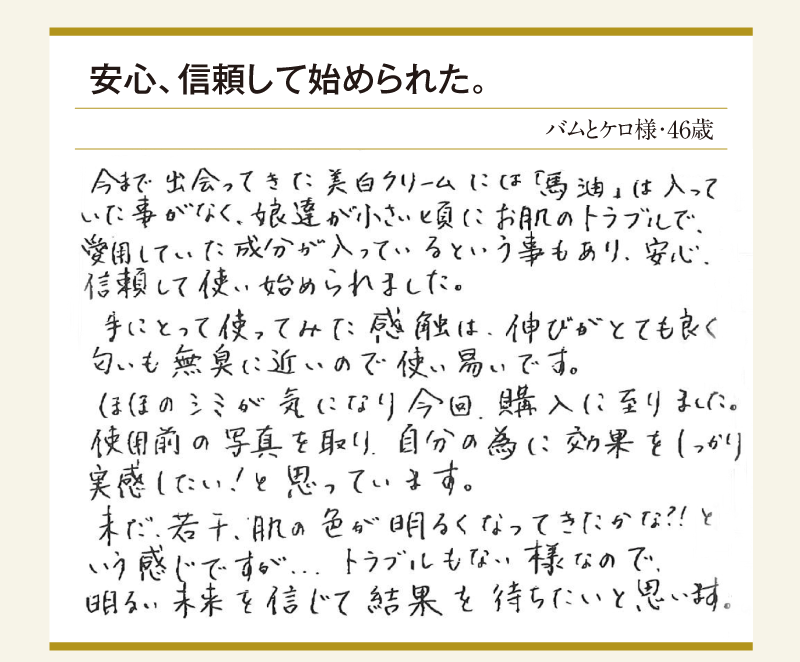 安心、信頼して始められた。
バムとケロ様・46歳
今まで出会ってきた美白クリームには「馬油」は入って
いた事がなく、娘達が小さい頃にお肌のトラブルで、
愛用していた成分が入っているという事もあり、安心、
信頼して使い始められました。
手にとって使ってみた感触は、伸びがとても良く
匂いも無臭に近いので使い易いです。
ほほのシミが気になり今回、購入に至りました。
使用前の写真を取り、自分の為に効果をしっかり
実感したい!と思っています。
未だ、若干、肌の色が明るくなってきたかな?!と
いう感じですが... トラブルもない様なので、
明るい未来を信じて結果を待ちたいと思います。